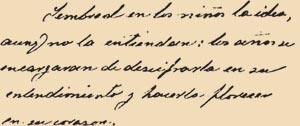 Sembrad en los niños la idea,
aunq) no la entiendan: los años se
encargaran de descifrarla en su
entendimiento y hacerla florecer
en su corazon.